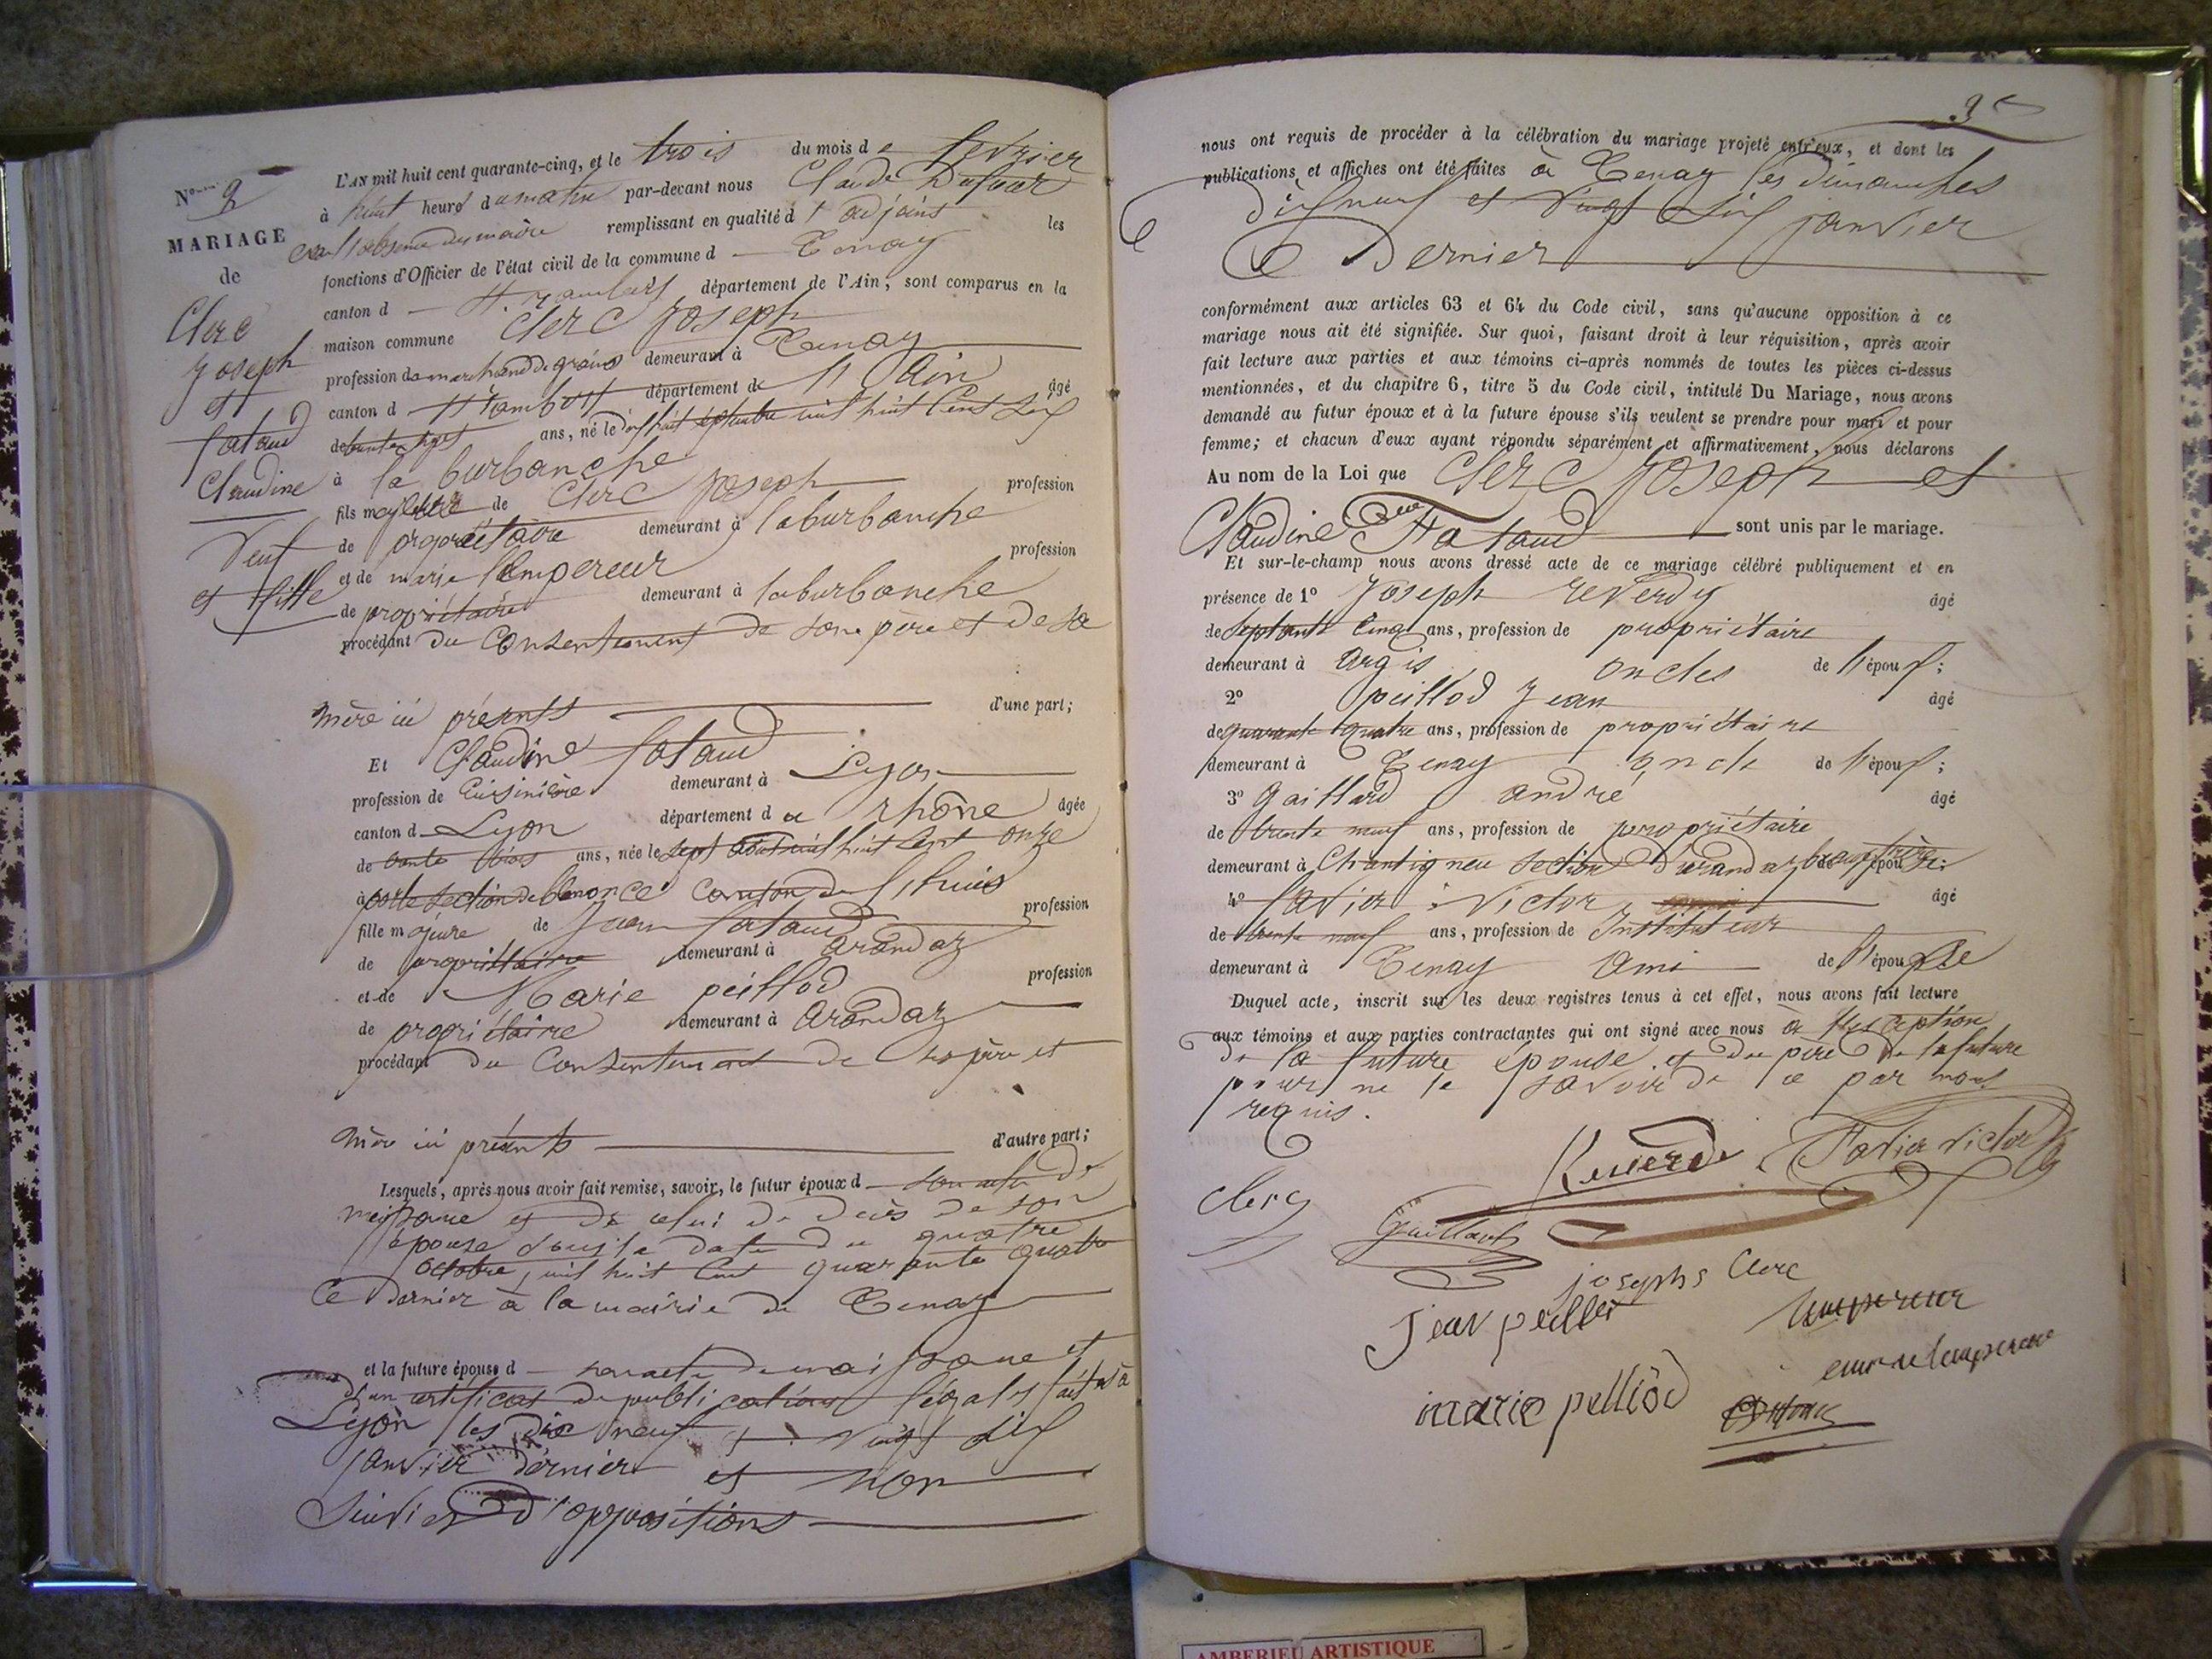 No 2
MARIAGE
de
Clerc
Joseph
et
fataud
Claudine
Veuf
et fille
L'AN mil huit cent quarante-cinq, et le trois du mois de fevrier
à huit heures du matin par-devant nous Claude Dufour
en l'absence du maire remplissant en qualité d'adjoint les
fonctions d'Officier de l'état civil de la commune d Tenay
canton d St. rambert département de l'Ain, sont comparus en la
maison commune Clerc Joseph
profession de marchand de grains demeurant à Tenay
canton d St rambert département de l'Ain âgé
de trente huit ans, né le dix huit septembre mil huit Cent six
à la burbanche
fils majeur de Clerc Joseph profession
de propriétaire demeurant à laburbanche
et de marie lempereur profession
de propriétaire demeurant à laburbanche
procédant du Consentement de son père et de sa
mère ici présents d'une part;
Et Claudine fataud
profession de Cuisinière demeurant à Lyon
canton d Lyon département du rhône âgée
de trente trois ans, née le sept août mil huit cent onze
à porte section de benonce canton de lhuis
fille majeure de Jean fataud profession
de propriétaire demeurant à arandaz
et de Marie peillod profession
de propriétaire demeurant à arandaz
procédant du Consentement de ses père et
mère ici présents d'autre part;
Lesquels, après nous avoir fait remise, savoir, le futur époux d son acte de
naissance et de celui de décès de son
épouse sous la date du quatre
octobre, mil huit Cent quarante quatre
Ce dernier à la mairie de Tenay
et la future épouse d son acte de naissance et
d'un certificat de publications légales faites à
Lyon les dix neuf et vingt six
janvier dernier et non
Suivies d'oppositions
nous ont requis de procéder à la célébration du mariage projeté entr'eux, et dont les
publications et affiches ont été faites à Tenay les dimanches
dix neuf et vingt six janvier
Dernier
conformément aux articles 63 et 64 du Code civil, sans qu'aucune opposition à ce
mariage nous ait été signifiée. Sur quoi, faisant droit à leur réquisition, après avoir
fait lecture aux parties et aux témoins ci-après nommés de toutes les pièces ci-dessus
mentionnées, et du chapitre 6, titre 5 du Code civil, intitulé Du Mariage, nous avons
demandé au futur époux et à la future épouse s'ils veulent se prendre pour mari et pour
femme; et chacun d'eux ayant répondu séparément et affirmativement, nous déclarons
Au nom de la Loi que Clerc Joseph et
Claudine Fataud sont unis par le mariage.
Et sur-le-champ nous avons dressé acte de ce mariage célébré publiquement et en
présence de 1o Joseph reverdy âgé
de septante Cinq ans, profession de propriétaire
demeurant à argis oncles de l'époux;
2o peillod Jean âgé
de quarante quatre ans, profession de propriétaire
demeurant à Tenay oncle de l'époux;
3o gaillard andré âgé
de trente neuf ans, profession de propriétaire
demeurant à Chantigneu section d'arandaz beaufrère de épou
4o favier Victor âgé
de trente neuf ans, profession de Instituteur
demeurant à Tenay ami de l'épouse
Duquel acte, inscrit sur les deux registres tenus à cet effet, nous avons fait lecture
aux témoins et aux parties contractantes qui ont signé avec nous à l'exception
de la future épouse et du père de la future
pour ne le savoir de ce par nous
requis.
Reverdi
Favier victor
clerc
Gaillard
josephs Clerc
jean peillod
lempereur
marie pelliod
AMBERIEU ARTISTIQUE